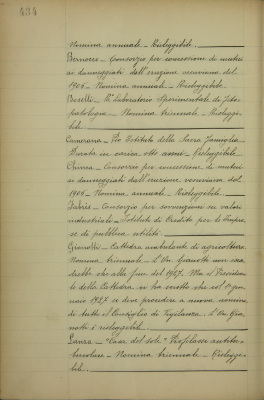 434
Nomina annuale - Rieleggibile.
Bernocco - Consorzio per concessione di mutui
ai danneggiati dall'eruzione vesuviana del
1906 - Nomina annuale - Rieleggibile.
Borelli - R. Laboratorio Sperimentale di Fito
patologia - Nomina triennale - Rieleggi-
bile.
Camerana - Pio Istituto della Sacra Famiglia
Durata in carica otto anni - Rieleggibile.
Chiesa - Consorzio per concessione di mutui
ai danneggiati dall'eruzione vesuviana del
1906 - Nomina annuale - Rieleggibile.
Consorzio per sovvenzioni su valori
industriali - Istituto di Credito per le Impre
se di pubblica utilità -
Gianotti - Cattedra ambulante di agricoltura
Nomina triennale - L'On. Gianotti non sca
drebbe che alla fine del 1927. Ma il Presiden
te della Cattedra ci ha scritto che col 1° gen
naio 1927 si deve procedere a nuova nomina
di tutto il Consiglio di Vigilanza. L'On. Gia
notti è rieleggibile.
Lanza - "Casa del sole" Profilassi antitu-
bercolare - Nomina triennale - Rieleggi-
bile.